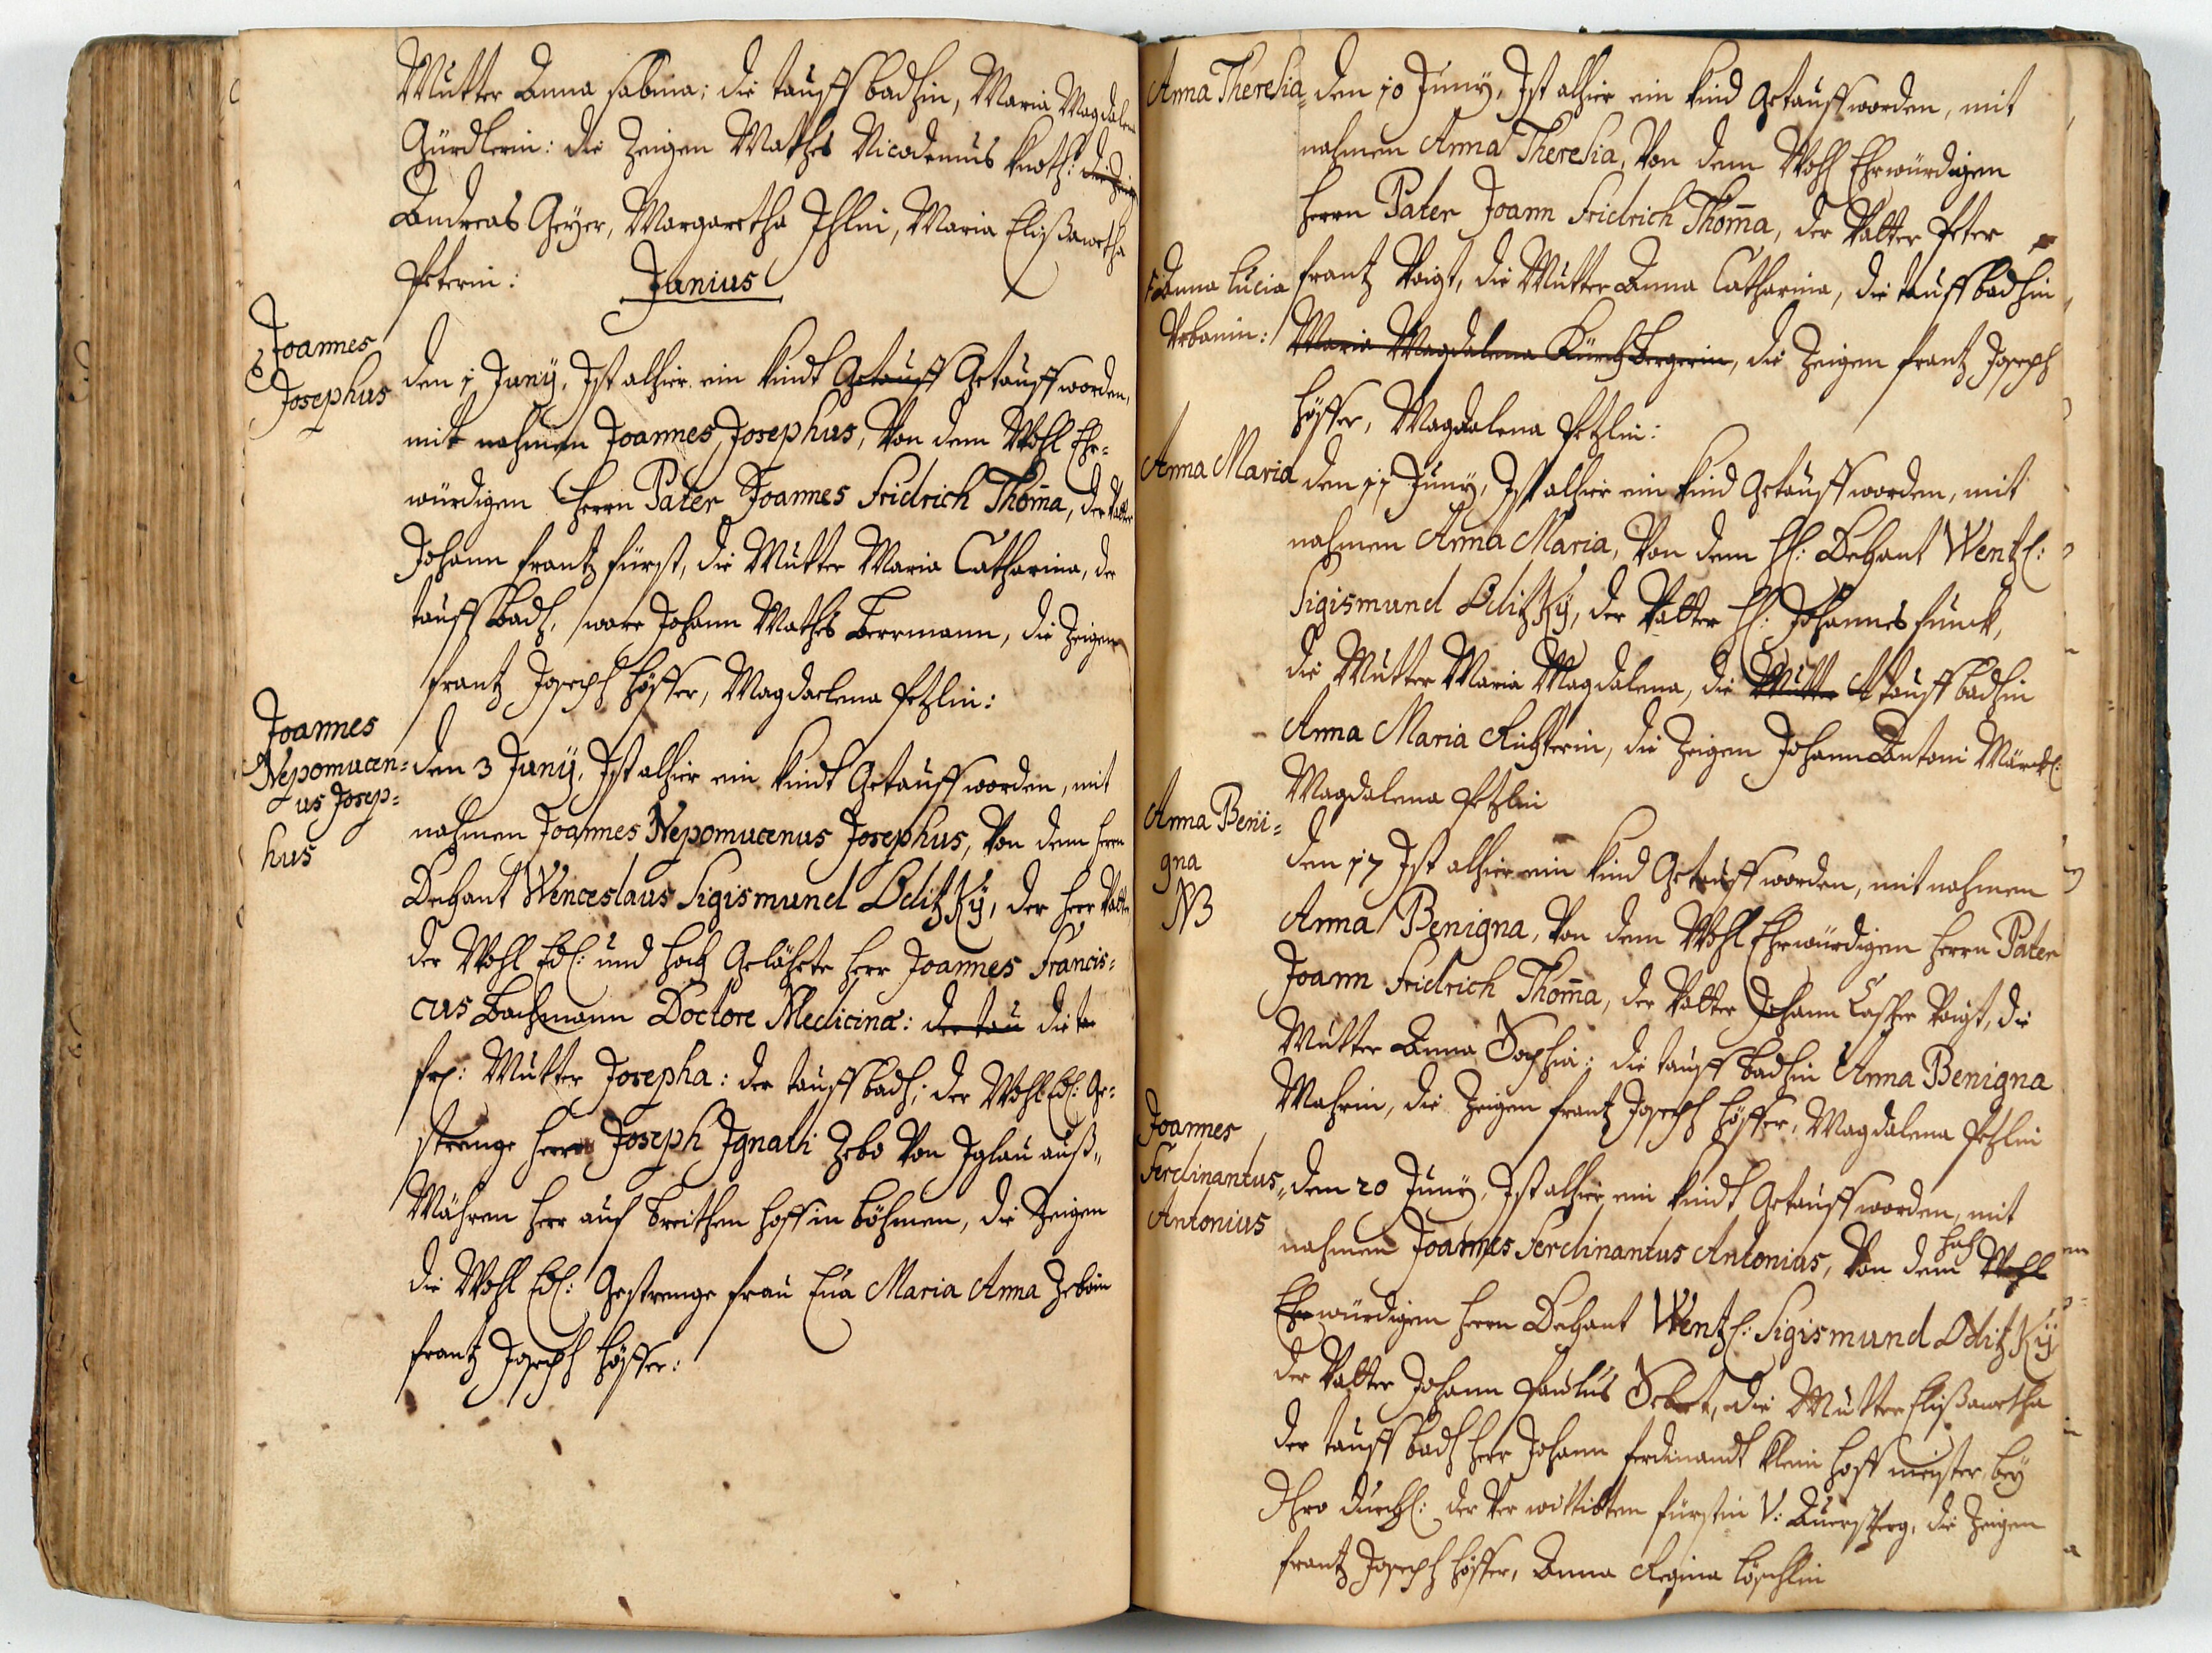 Mutter Anna Sabina: die tauff badhin, Maria Magdalena
Gürdlerin: die Zeigen Mathes Nicodemus Knoth: die Zeigen
Andreas Geyer, Margaretha Ihlin, Maria Elißawetha
Peterin:
Junius
Joannes
Josephus
den 1 Juny, Ist alhier ein Kindt Getauff Getaufft worden,
mit nahmen Joannes Josephus, Von dem Wohl Ehr=
würdigen Herrn Pater Joannes Fridrich Thom̄a, der Vatter
Johann frantz fürst, die Mutter Maria Catharina, der
tauff badh, ware Johann Mathes Berrmann, die Zeigen
frantz Joseph Höffer, Magdaelena Petzlin:
Joannes
Nepomucen=
us Josep=
hus
den 3 Juny, Ist alhier ein Kindt Getaufft worden, mit
nahmen Joannes Nepomucenus Josephus, Von dem Herrn
Dechant Wenceslaus Sigismund OditzKÿ, der Herr Vatter
der Wohl Edl: und hoch Gelährte Herr Joannes Francis=
cus Bachmann Doctore Medicinæ: der tau die
fr: Mutter Josepha: der tauff badh; der Wohl Edl: Ge=
strenge Herr Joseph Ignati Zebo Von Iglau auß
Mähren Herr auf breithen Hoff in böhmen, die Zeigen
die Wohl Edl: Gestrenge frau Eua Maria Anna Zeboin
frantz Joseph Höffer:
Anna Theresia
den 10 Juny, Ist alhier ein Kind Getaufft worden, mit
nahmen Anna Theresia, Von dem Wohl Ehrwürdigen
Herrn Pater Joann Fridrich Thom̄a, der Vatter Peter
frantz Voigt, die Mutter Anna Catharina, die tauff badhin
Anna Lucia
Urbanin:
Maria Magdalena Kürchbergerin, die Zeigen frantz Joseph
Höffer, Magdalena Petzlin:
Anna Maria
den 11 Juny, Ist alhier ein Kind Getaufft worden, mit
nahmen Anna Maria, Von dem H: Dechant Wentzl:
Sigismund OditzKÿ, der Vatter H: Johannes funck,
die Mutter Maria Magdalena, die Mutter tauff badhin
Anna Maria Richterin, die Zeigen Johann Antoni Märckl:
Magdalena Petzlin
Anna Beni=
gna
NB
den 17 Ist alhier ein Kind Getaufft worden, mit nahmen
Anna Benigna, Von dem Wohl Ehrwürdigen Herrn Pater
Joann Fridrich Thom̄a, der Vatter Johann Casper Voigt, die
Mutter Anna Sophia: die tauff badhin Anna Benigna
Mahrin, die Zeigen frantz Joseph Höffer, Magdalena Petzlin
Joannes
Ferdinantus
Antonius
den 20 Juny, Ist alhier ein Kindt Getaufft worden, mit
nahmen Joannes Ferdinantus Antonius, Von dem hoch Wohl
Ehrwürdigen Herrn Dechant Wentzl: Sigismund OditzKÿ
der Vatter Johann Paulus Sebert, die Mutter Elißawetha
der tauff badh Herr Johann Ferdinandt Klein Hoff meister bey
Ihro durchl: der Ver wittibten fürstin V: Auersperg, die Zeigen
frantz Joseph Höffer, Anna Regina Löschlin